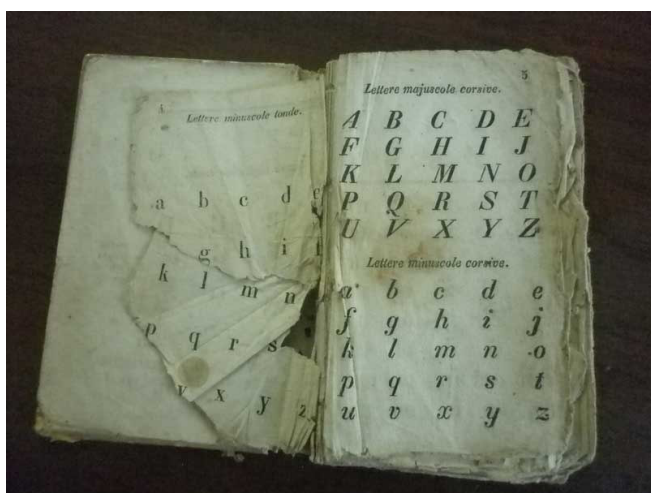 Lettere minuscole tonde.
a b c d e
g h i
k l m n
p q r s
v x y z
5
Lettere majuscole corsive.
A B C D E
F G H I J
K L M N O
P Q R S T
U V X Y Z
Lettere minuscole corsive.
a b c d e
f g h i j
k l m n o
p q r s t
u v x y z